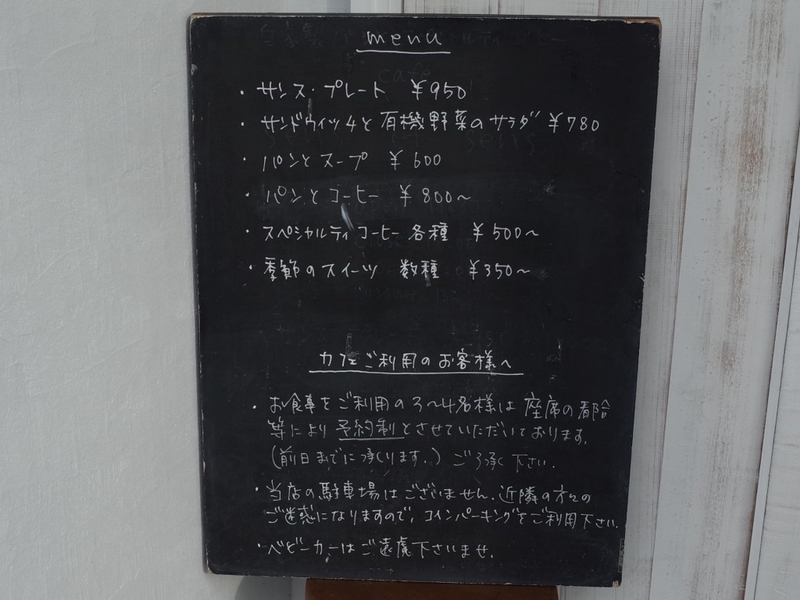 menu
・サンス・プレート ¥950
・サンドウィッチと有機野菜のサラダ ¥780
・パンとスープ ¥600
・パンとコーヒー ¥800〜
・スペシャルティコーヒー各種 ¥500〜
・季節のスイーツ 数種 ¥350〜
カフェご利用のお客様へ
・お食事をご利用の3〜4名様は座席の都合
等により予約制とさせていただいております。
(前日までに承ります。) ご了承下さい。
・当店の駐車場はございません。近隣の方々の
ご迷惑になりますので、コインパーキングをご利用下さい。
・ベビーカーはご遠慮下さいませ。